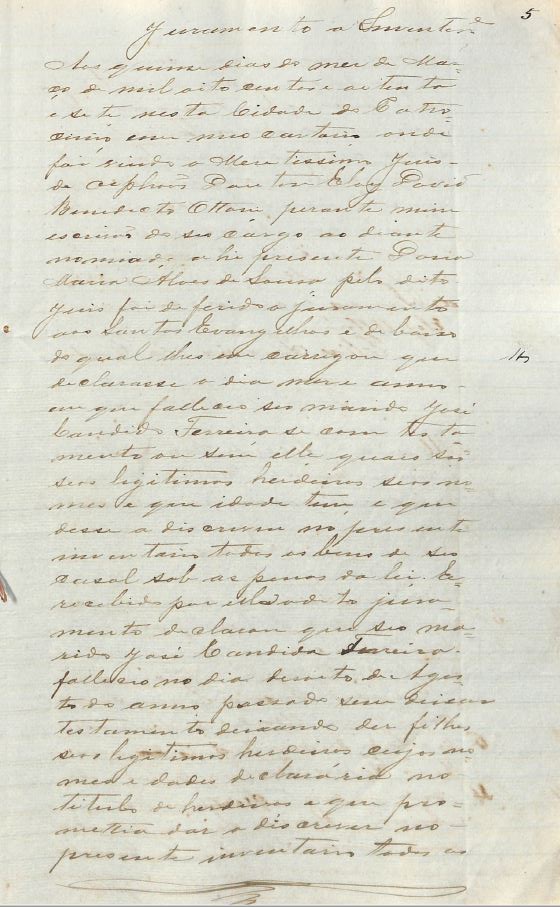 5
Juramento a Invente
Aos quinse dias do mez de Mar-
ço de mil oito centos e oitenta
e sete nesta Cidade do Patro-
cinio em meo cartorio onde
foi vindo o Meretissimo Juis
de orphãos Doutor Eloy David
Benedicto Ottoni, perante mim
escrivão de seo cargo ao deante
nomeado, ahi presente Dona
Maria Alves de Sousa pelo dito
Juis foi deferido o juramento
aos Santos Evangelhos e de baixo
do qual lhes en carregou que
declarasse o dia mez e anno
em que falleceo seo marido José
Candido Ferreira se com testa
mento ou sem elle quaes são
seos legitimos herdeiros seos no-
mes e que idade tem e que
desse a discrever no presente
inventario todos os bens de seo
casal sob as penas da lei. E
recebido por ella o dito jura-
mento declarou que seo ma-
rido José Candido Ferreira
falleceo no dia desoito de Agos
to do anno passado sem deixar
testamento deixando des filhos
seos legitimos herdeiros cujos no-
mes e idades declararia no
titulo de herdeiros e que pro-
mettia dar a discrever no
presente inventario todos os